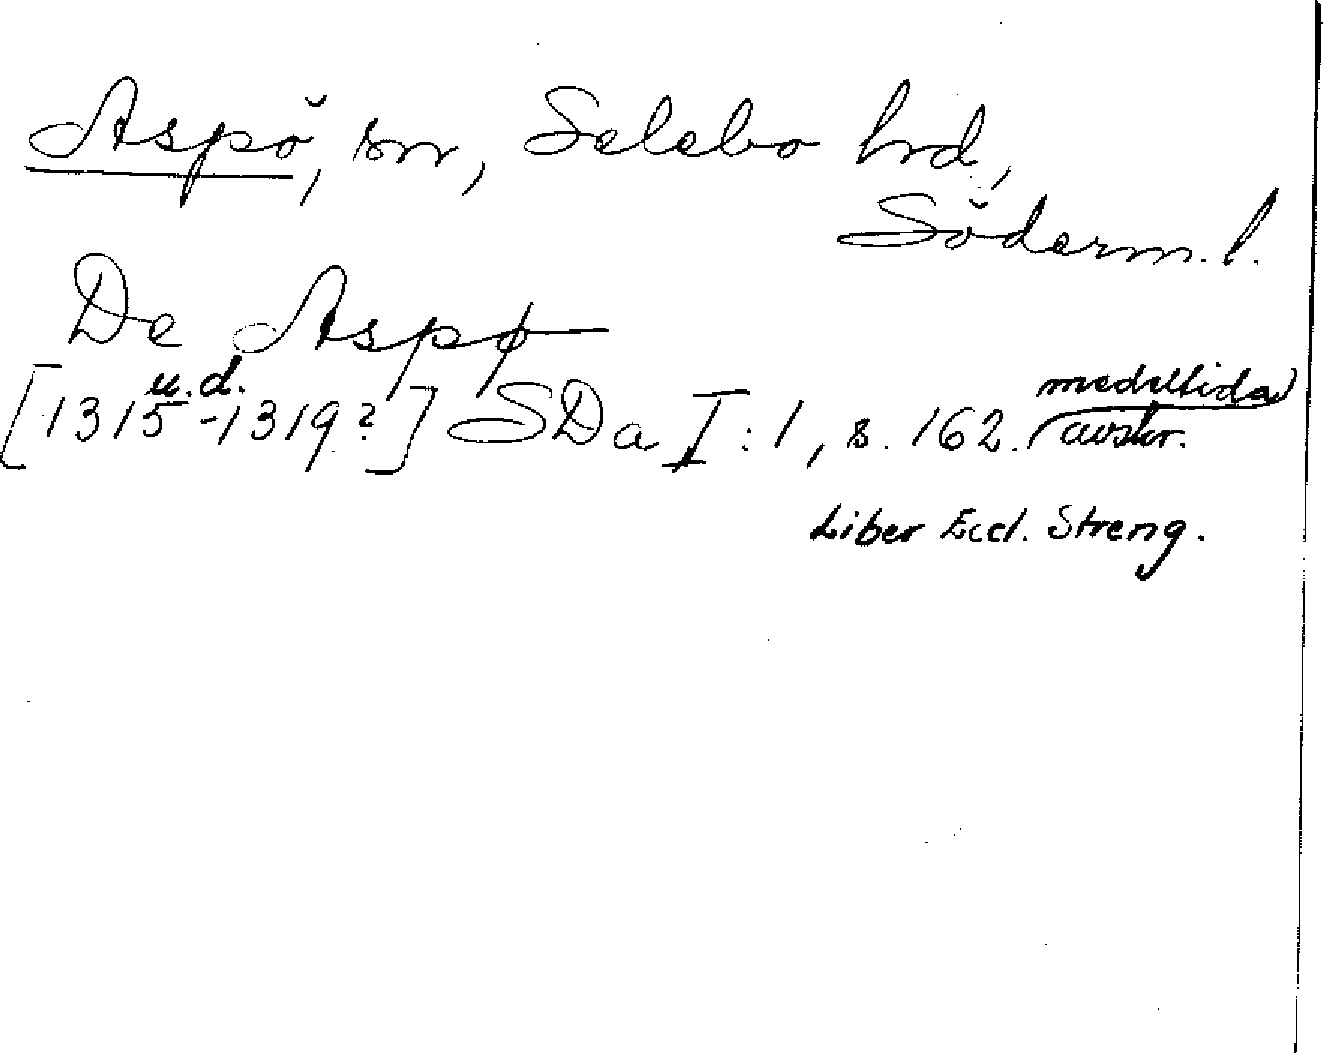 Aspö, sn, Selebo hrd,
Söderm. l.
De Aspø
u.d.
[1315-1319?] SDa I:1, s. 162. medeltida avskr.
Liber Eccl. Streng.